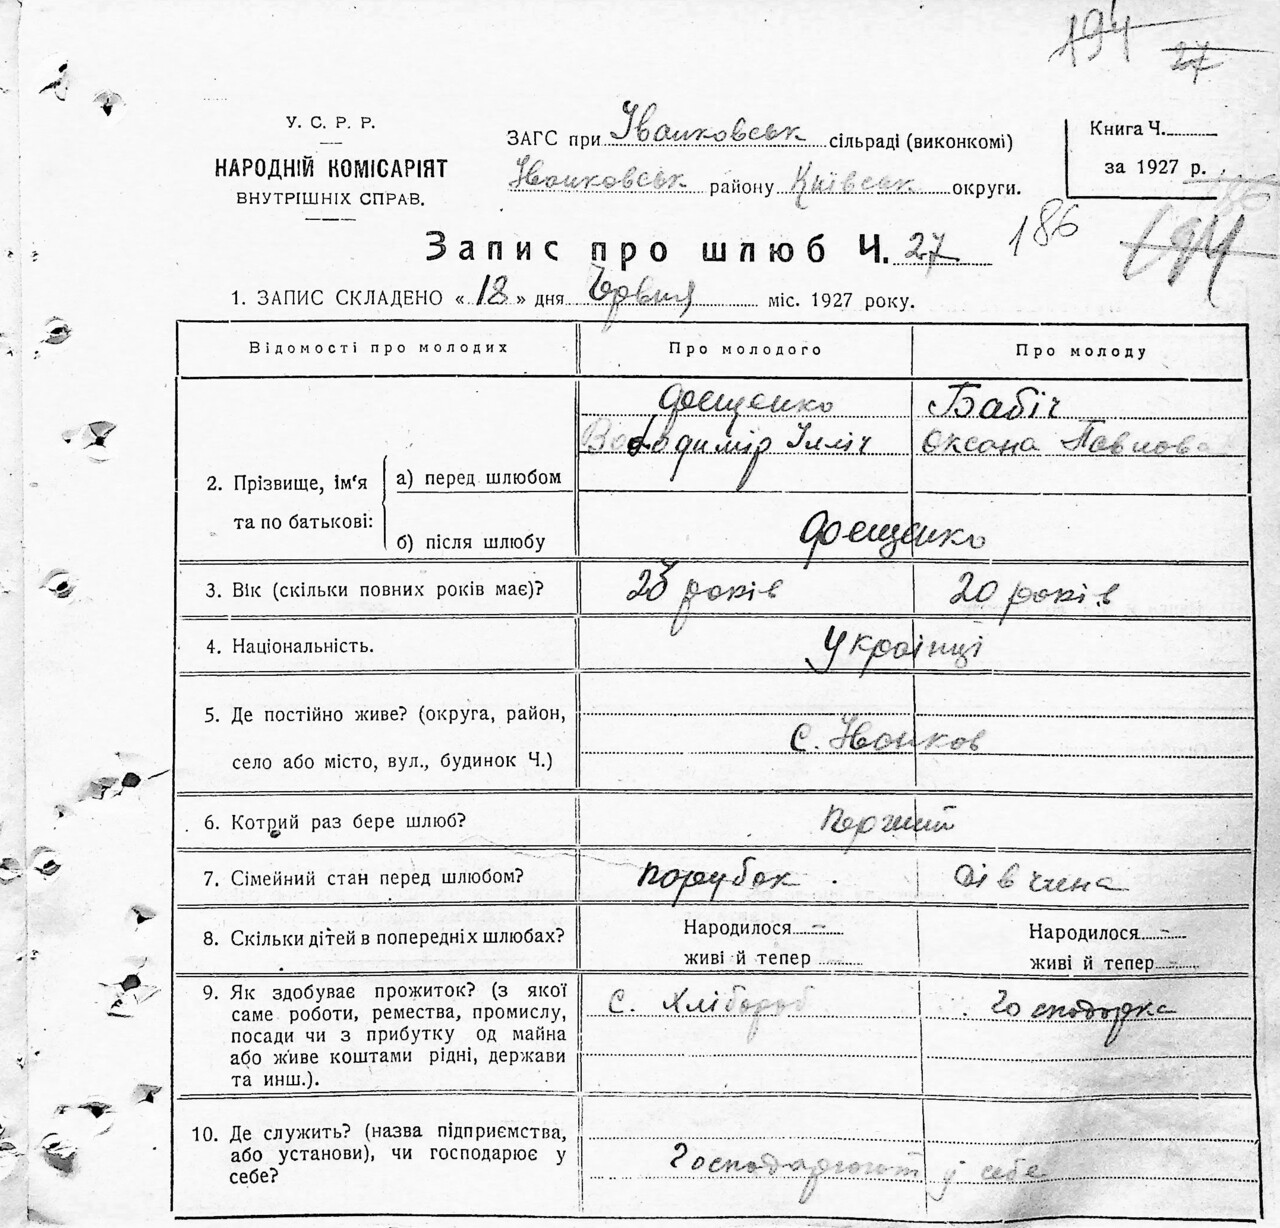 194
27
У. С. Р. Р.
НАРОДНІЙ КОМІСАРІЯТ
ВНУТРІШНІХ СПРАВ.
ЗАГС при Іванковськ сільраді (виконкомі)
Іванковськ району Київськ округи.
Книга Ч.
за 1927 р.
186
Запис про шлюб Ч. 27
186
194
1. ЗАПИС СКЛАДЕНО « 18 » дня Червня міс. 1927 року.
Відомості про молодих
Про молодого
Про молоду
2. Прізвище, ім'я та по батькові:
а) перед шлюбом
Фещенко
Володимір Ілліч
Бабіч
Оксана Павлова
б) після шлюбу
Фещенко
3. Вік (скільки повних років має)?
23 років
20 років
4. Національність.
Українці
5. Де постійно живе? (округа, район,
село або місто, вул., будинок Ч.)
с. Іванков
6. Котрий раз бере шлюб?
Перший
7. Сімейний стан перед шлюбом?
Парубок
Дівчина
8. Скільки дітей в попередніх шлюбах?
Народилося -
живі й тепер -
Народилося -
живі й тепер -
9. Як здобуває прожиток? (з якої
саме роботи, ремества, промислу,
посади чи з прибутку од майна
або живе коштами рідні, держави
та инш.).
с. Хлібороб
Господарка
10. Де служить? (назва підприємства,
або установи), чи господарює у
себе?
Господарюют у себе